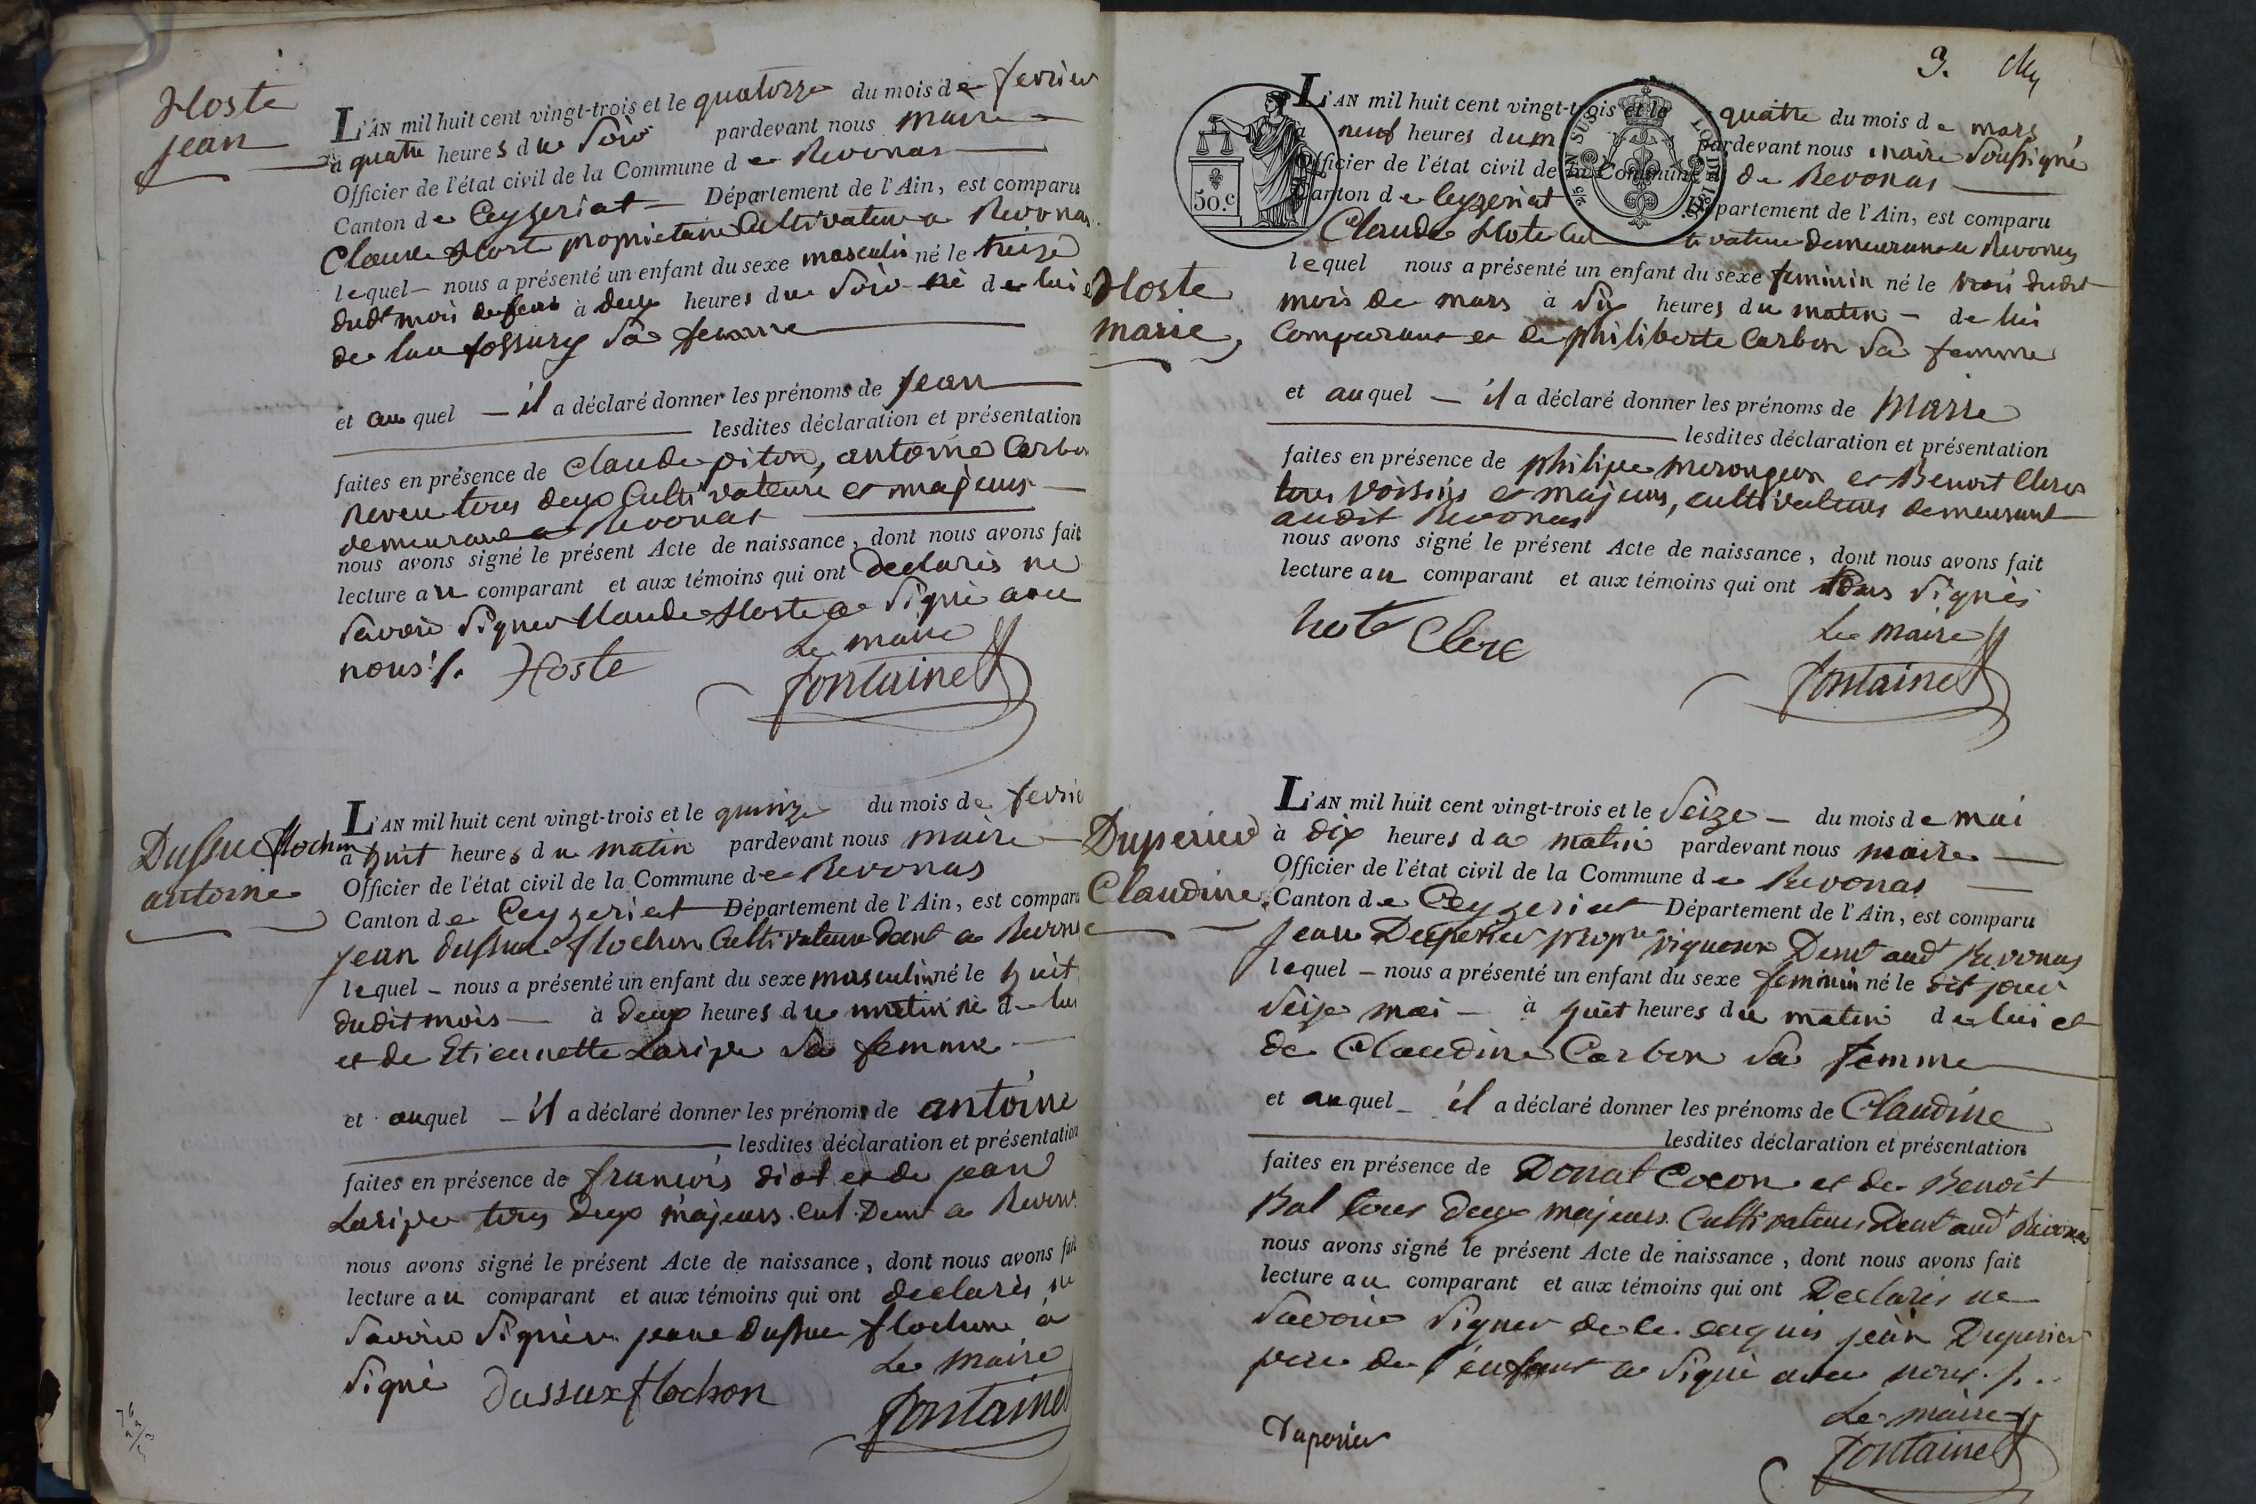 Hoste
Jean
L'AN mil huit cent vingt-trois et le quatorze du mois de fevrier
à quatre heures du soir pardevant nous maire
Officier de l'état civil de la Commune de Revonas
Canton de Ceyzeriat Département de l'Ain, est comparu
Claude Hoste proprietaire Cultivateur a Revonas
lequel nous a présenté un enfant du sexe masculin né le treize
dudt mois de à deux heures du soir né de lui
de sa femme
et auquel il a déclaré donner les prénoms de Jean
lesdites déclaration et présentation
faites en présence de Claude piton, antoine Carbon
Neveu tous deux Cultivateurs et majeurs
demeurant a Revonas
nous avons signé le présent Acte de naissance, dont nous avons fait
lecture au comparant et aux témoins qui ont declarés ne
savoir signer Claude Hoste a signé avec
nous ./.
Hoste
Le maire
fontaine
Dussuc flochon
antoine
L'AN mil huit cent vingt-trois et le quinze du mois de fevrie
à huit heures du matin pardevant nous maire
Officier de l'état civil de la Commune de Revonas
Canton de Ceyzeriat Département de l'Ain, est compar
Jean dussuc flochon Cultivateur dant a Revonas
lequel nous a présenté un enfant du sexe masculin né le huit
dudit mois à deux heures du matin né de lui
et de Etiennette Laripe sa femme
et auquel il a déclaré donner les prénoms de antoine
lesdites déclaration et présentation
faites en présence de francois diot et de jean
Laripe tous deux majeurs cul. Demt a Revonas
nous avons signé le présent Acte de naissance, dont nous avons fait
lecture au comparant et aux témoins qui ont declarés ne
savoir signer jean dussuc flochon a
signé
Dussux flochon
Le maire
fontaine
9.
50.c
L'AN mil huit cent vingt-trois et le quatre du mois de mars
à neuf heures du m pardevant nous maire soussigné
Officier de l'état civil de la Commune de Revonas
Canton de Ceyzeriat Département de l'Ain, est comparu
Claude Hote Cultivateur demeurant a Revonas
Hoste
marie
lequel nous a présenté un enfant du sexe feminin né le trois dudit
mois de mars à six heures du matin de lui
Comparant et de philiberte Carbon sa femme
et auquel il a déclaré donner les prénoms de Marie
lesdites déclaration et présentation
faites en présence de philipe et Benoit Clerc
tous voisins et majeurs, cultivateurs demeurant
audit Revonas
nous avons signé le présent Acte de naissance, dont nous avons fait
lecture au comparant et aux témoins qui ont tous signés
hote Clerc
Le maire
fontaine
Duperier
Claudine
L'AN mil huit cent vingt-trois et le seize du mois de mai
à dix heures du matin pardevant nous maire
Officier de l'état civil de la Commune de Revonas
Canton de Ceyzeriat Département de l'Ain, est comparu
Jean Duperier propre vigneron Demt audt Revonas
lequel nous a présenté un enfant du sexe feminin né le dit jour
seize mai à huit heures du matin de lui et
de Claudine Carbon sa femme
et auquel il a déclaré donner les prénoms de Claudine
lesdites déclaration et présentation
faites en présence de Donat Cocon et de Benoit
Bal tous deux majeurs Cultivateurs Demt audt Revonas
nous avons signé le présent Acte de naissance, dont nous avons fait
lecture au comparant et aux témoins qui ont Declarés ne
savoir signer de ce enquis jean Duperier
pere de l'enfant a signé avec nous ./.
Le maire
Duperier
fontaine